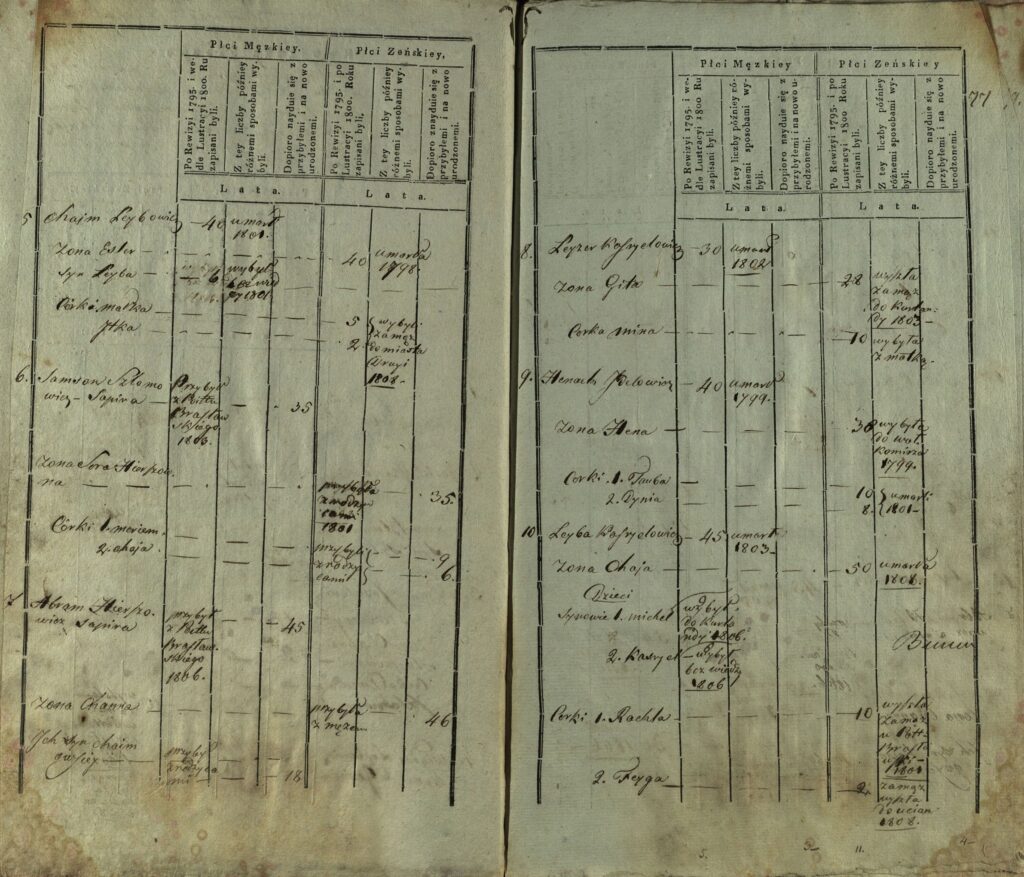 Płci Męzkiey.
Płci Zeńskiey,
Po Rewizyi 1795. i we-
dle Lustracyi 1800. Ru
zapisani byli.
Z tey liczby póżniey
różnemi sposobami wy-
byli.
Dopioro nayduie się z
przybyłemi i na nowo
urodzonemi.
Po Rewizyi 1795- i po
Lustracyi 1800. Roku
zapisani byli.
Z tey liczby póżniey
różnemi sposobami wy-
byli.
Dopioro znayduie się z
przybyłemi i na nowo
urodzonemi.
Lata.
Lata.
5 Chaim Leybowicz — 40 umarł
1801.
Zona Ester 40 umarła
1798
Syn Leyba — 6. wybył
1801
Córka Małka 5 wybyli
Jtka 2. zamąż
do miasta
1808-
6. Samson Szlomo przybył
wicz — Sapira z Pttu 35
Brasław
skiego
1803.
Zona Sora Hierszo-
wna przybyła 35.
z rodzy
cami
1801
Córki 1. Meriem. przybyli 9
2. Chaja. z rodzy 6.
cami
7 Abram Hierszo-
wicz Sapira przybył 45
z Pttu
Brasław.
skiego
1806.
Zona Channa przybyła 46
z mężem
Ich Syn Chaim przybył
z rodzyca
mi 18
77
Płci Męzkiey
Płci Zeńskiey
Po Rewizyi 1795- i we-
dle Lustracyi 1800 Ru
zapisani byli.
Z tey liczby póżniey ró-
żnemi sposobami wy-
byli.
Dopioro nayduie się z
przybyłemi i na nowo u-
rodzonemi.
Po Rewizyi 1795. i po
Lustracyi 1800 Roku
zapisani byli.
Z tey liczby póżniey
różnemi sposobami wy-
byli.
Dopioro nayduie się z
przybyłemi i na nowo
urodzonemi.
Lata.
Lata.
8. Leyzer Kasryelowicz — 30 umarł
1802
Zona Gita 28 wyszła
zamąż
do Kurlan-
dy 1803-
Corka Mina — 10 wybyła
z matką.
9. Henach — 40 umarł
1799.
Zona Hena — 38 wybyła
do
1799.
Corki 1. Tauba 10 umarli
2. Dynia 8. 1801-
10 Leyba Kasryelowicz — 45 umarł
1803-
Zona Chaja — 50 umarła
1806.
Dzieci
Synowie 1. Michel wybył
do Kurla
ndy 1806.
2. Kasryel — wybył
bez wiedzy
1806
Corki 1. Rachla — 10 wyszła
zamąż
w Ptt.
Brasła
1801
2. Feyga — 2. zamąż
wyszła
do Ucian
1808.
5. 3- 11. 4-